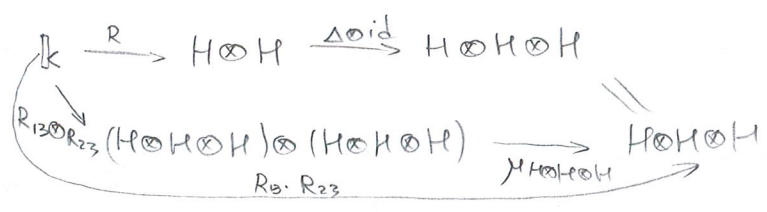 𝕜 R→ H⊗H Δ⊗id→ H⊗H⊗H
R₁₃⊗R₂₃ (H⊗H⊗H)⊗(H⊗H⊗H) μH⊗H⊗H→ H⊗H⊗H
R₁₃·R₂₃